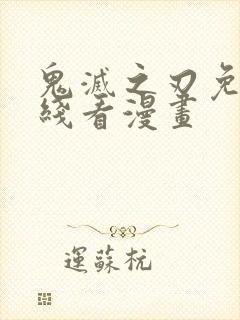 鬼滅之刃免
綫看漫畫
運蘇杭